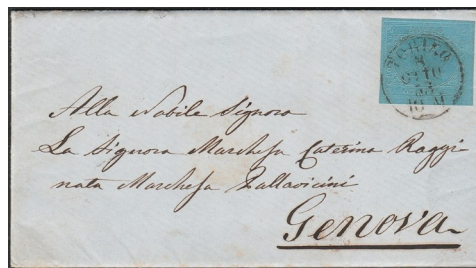 TORINO
8
GIU
53
10 M
Alla Nobile Signora
La Signora Marchesa Caterina Raggi
nata Marchesa Pallavicini
Genova